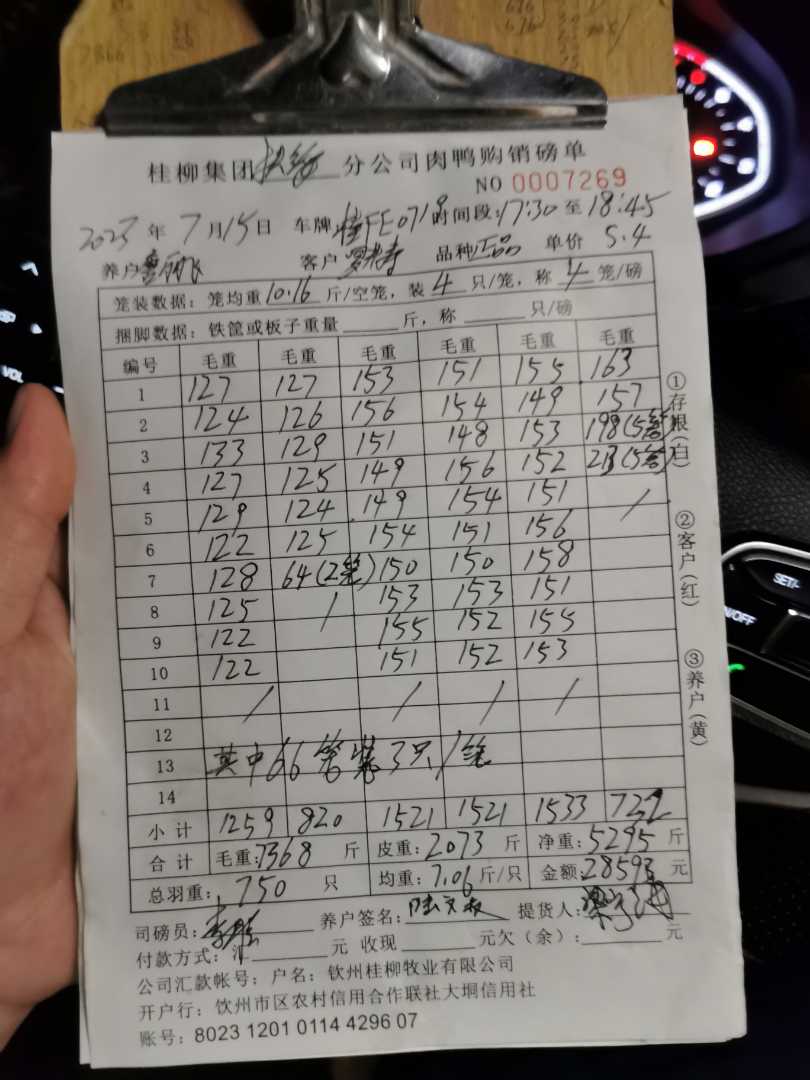 桂柳集团 分公司肉鸭购销磅单
NO 0007269
2023 年 7 月 15 日 车牌 桂FE0719 时间段:17:30 至 18:45
养户 客户 罗 品种 正品 单价 5.4
笼装数据:笼均重 10.16 斤/空笼,装 4 只/笼,称 4 笼/磅
捆脚数据:铁筐或板子重量 斤,称 只/磅
编号 毛重 毛重 毛重 毛重 毛重 毛重
1 127 127 153 151 155 163
2 124 126 156 154 149 157
3 133 129 151 148 153 198(5笼)
4 127 125 149 156 152 213(5笼)
5 129 124 149 154 151 /
6 122 125 154 151 156
7 128 64(2笼) 150 150 158
8 125 / 153 153 151
9 122 155 152 155
10 122 151 152 153
11 / / / /
12
13 其中66笼装3只/笼
14
小计 1259 820 1521 1521 1533 732
合计 毛重:7368 斤 皮重:2073 斤 净重:5295 斤
总羽重: 750 只 均重:7.06 斤/只 金额:28593 元
司磅员: 养户签名: 提货人:
付款方式: 元 收现 元欠(余): 元
公司汇款帐号:户名:钦州桂柳牧业有限公司
开户行:钦州市区农村信用合作联社大垌信用社
账号:8023 1201 0114 4296 07
①存根(白)
②客户(红)
③养户(黄)
VOL
SET/-
ON/OFF